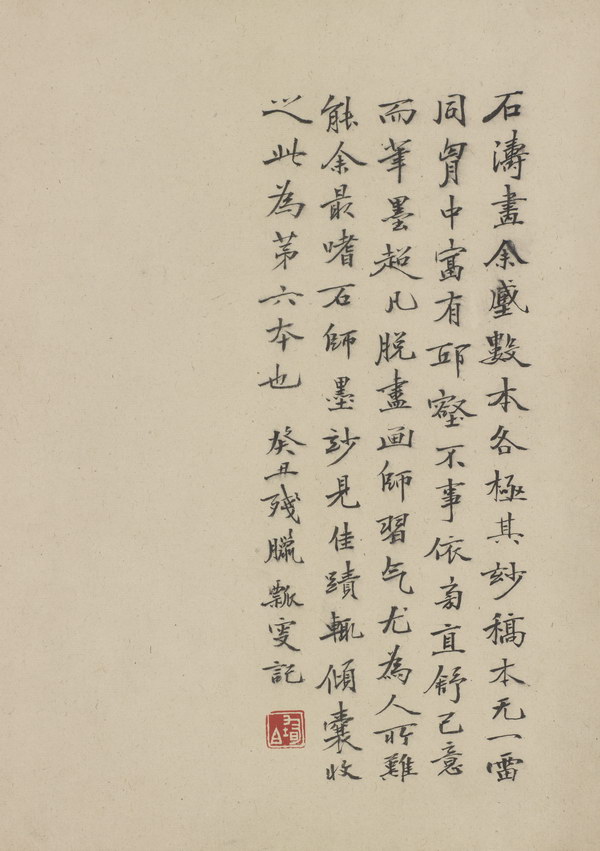 石濤畫余藏數本各極其玅稿本无一雷
同胷中富有邱壑不事依旁直舒己意
而筆墨超凡脱盡画師習气尤為人所難
能余最嗜石師墨玅見佳蹟輒傾囊收
之此為苐六本也 癸丑殘臘瓢叟記